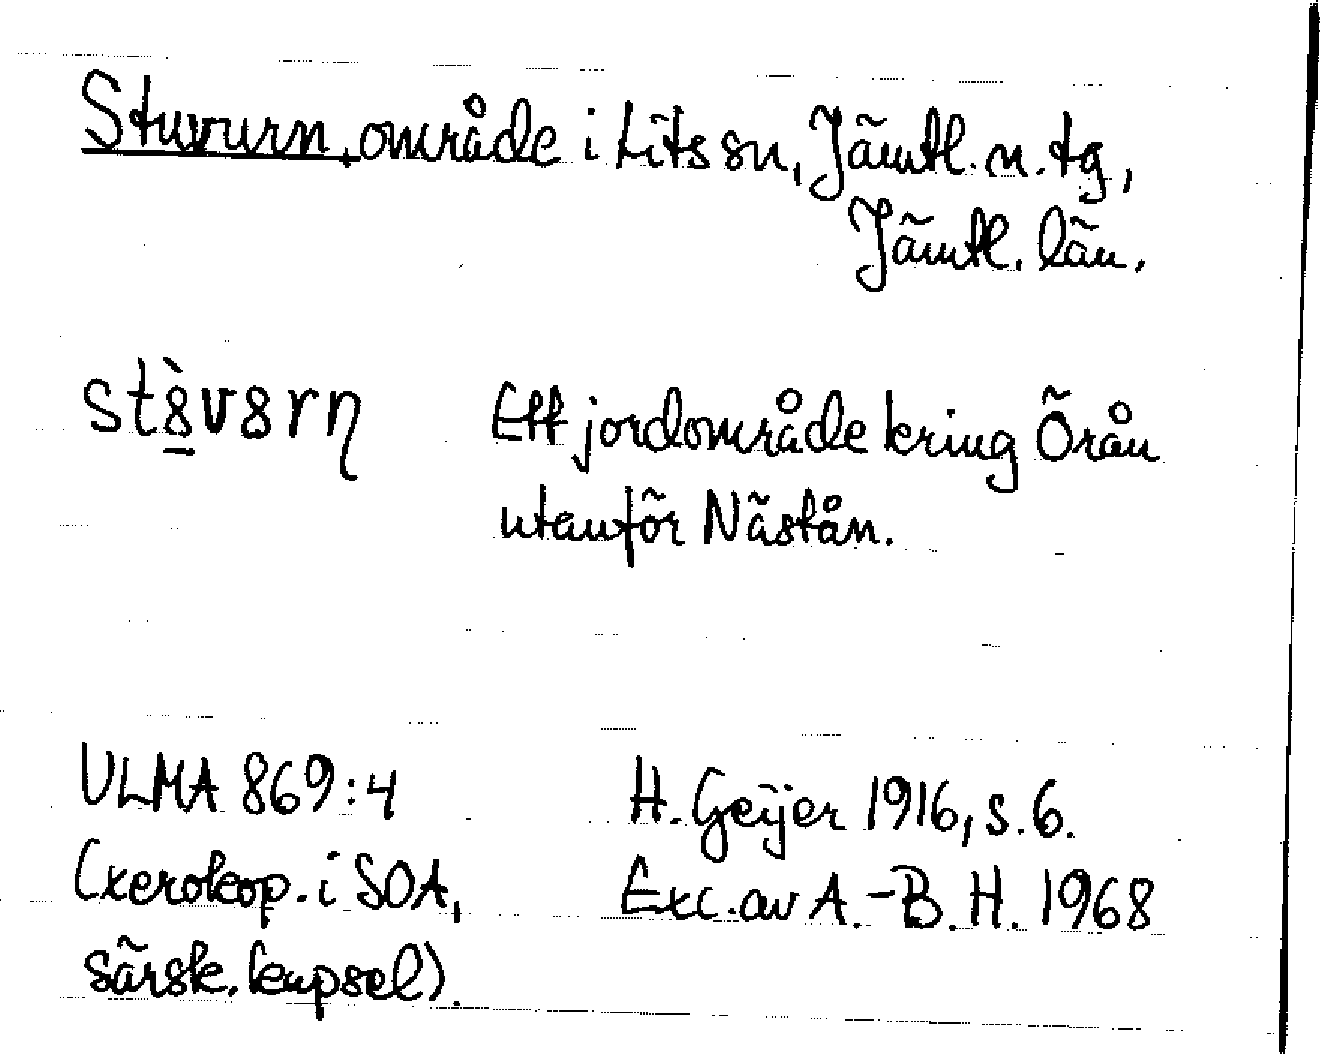 Stuvurn, område i Lits sn, Jämtl. n. tg,
Jämtl. län.
st8̱̀v8rη Ett jordområde kring Örån
utanför Nästån.
ULMA 869:4 H. Geijer 1916, s. 6.
(xerokop. i SOA, Exc. av A.-B. H. 1968
särsk. kapsel).